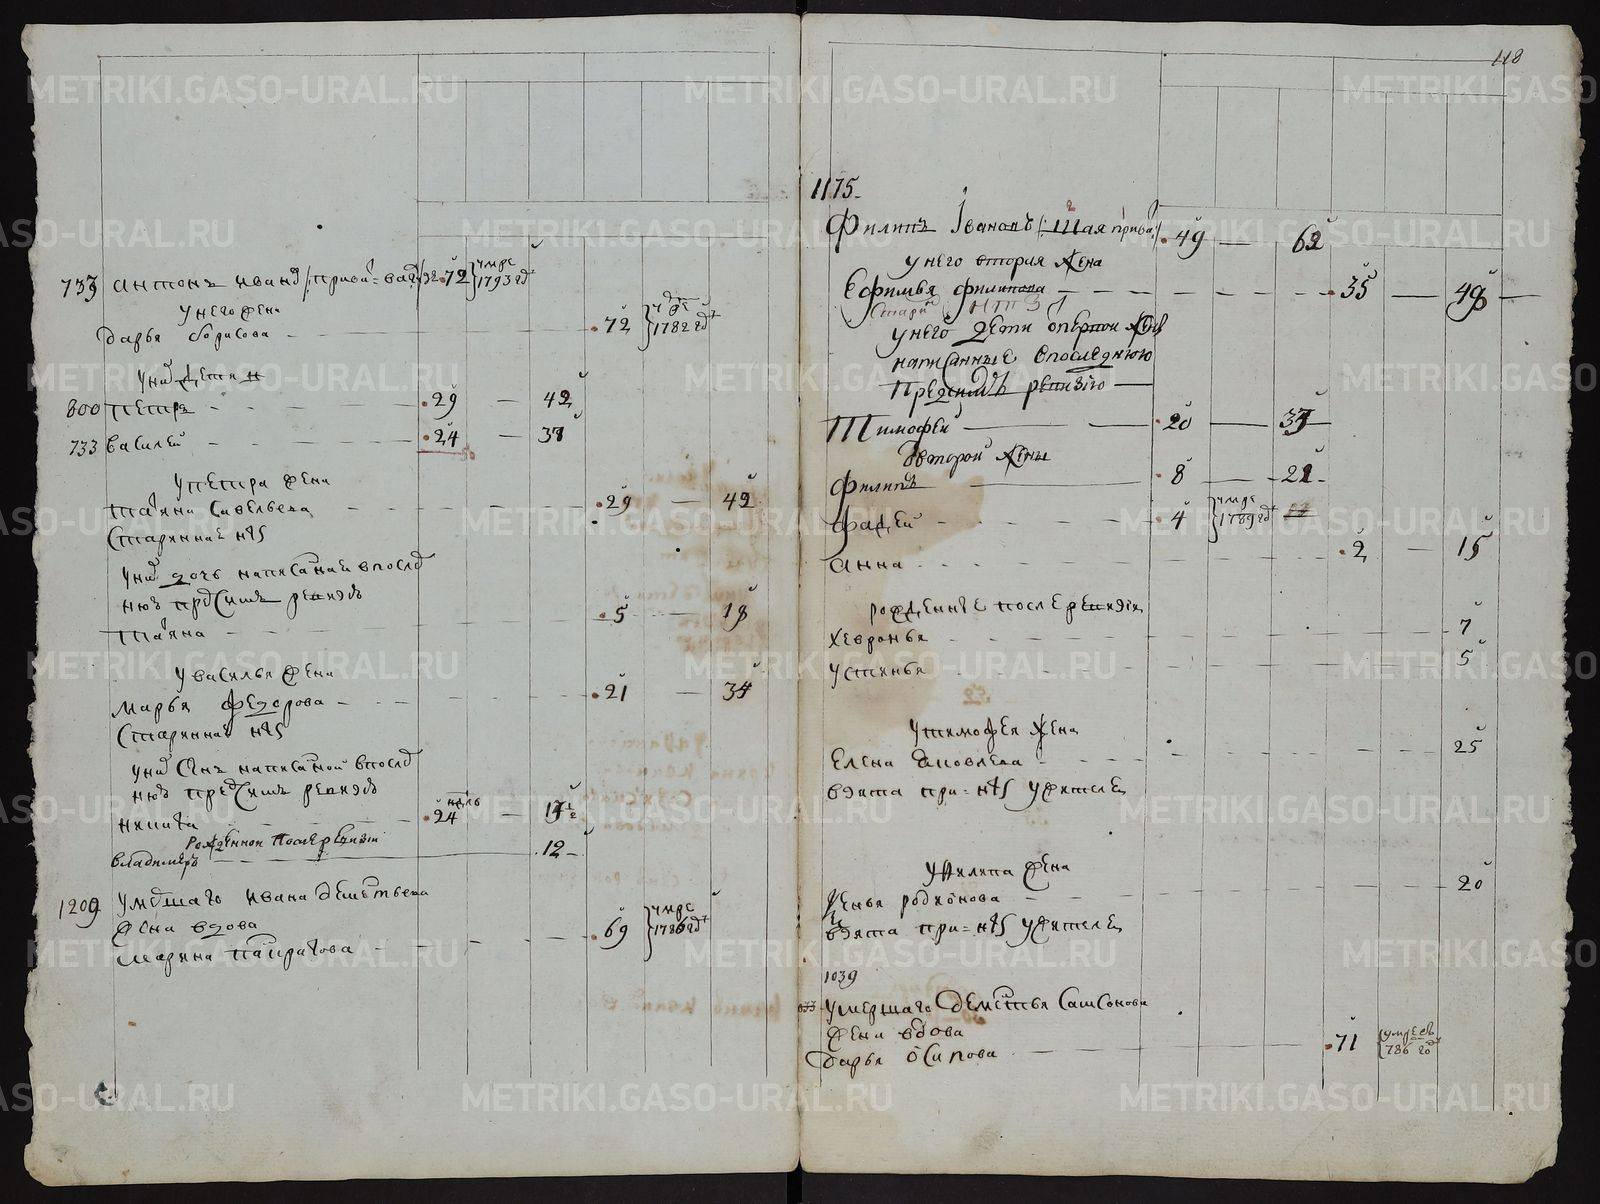 118
733 Антонъ Иванов 72 умре 1793 год
У него жена
Дарья Борисова 72 1782 год
У них дети
800 Петръ 29 — 42
733 Василей 24 — 37
У Петра жена
Татьяна Савельева 29 — 42
Старинная
У них дочь написанная в послед
нюю пред симъ ревизию
Татьяна 5 — 18
У Василья жена
Марья Федорова 21 — 34
Старинная
У них сынъ написанной в послед
нюю пред симъ ревизию
Никита 24 недель
Рожденной после ревизии
Владимеръ 12
1209 Умершаго Ивана Дементьева
жена вдова
Марина Панкратова 69 умре 1786 год
1175
Филипъ Ивановъ 49 — 62
У него вторая жена
Ефимья Филипова 35 — 48
У него дети от первой жены
написанные в последнюю
пред симъ ревизию
Тимофей 20
От второй жены
Филипъ 8 — 21
Фадей 4 умре 1789 год
Анна 2 — 15
Рожденные после ревизии
Хевронья 7
Устинья 5
У Тимофея жена
Елена Яковлева 25
взята
У Филипа жена
Родионова 20
взята
1039
Умершаго Дементья Самсонова
жена вдова
Дарья Осипова 71 умре 786 год
METRIKI.GASO-URAL.RU